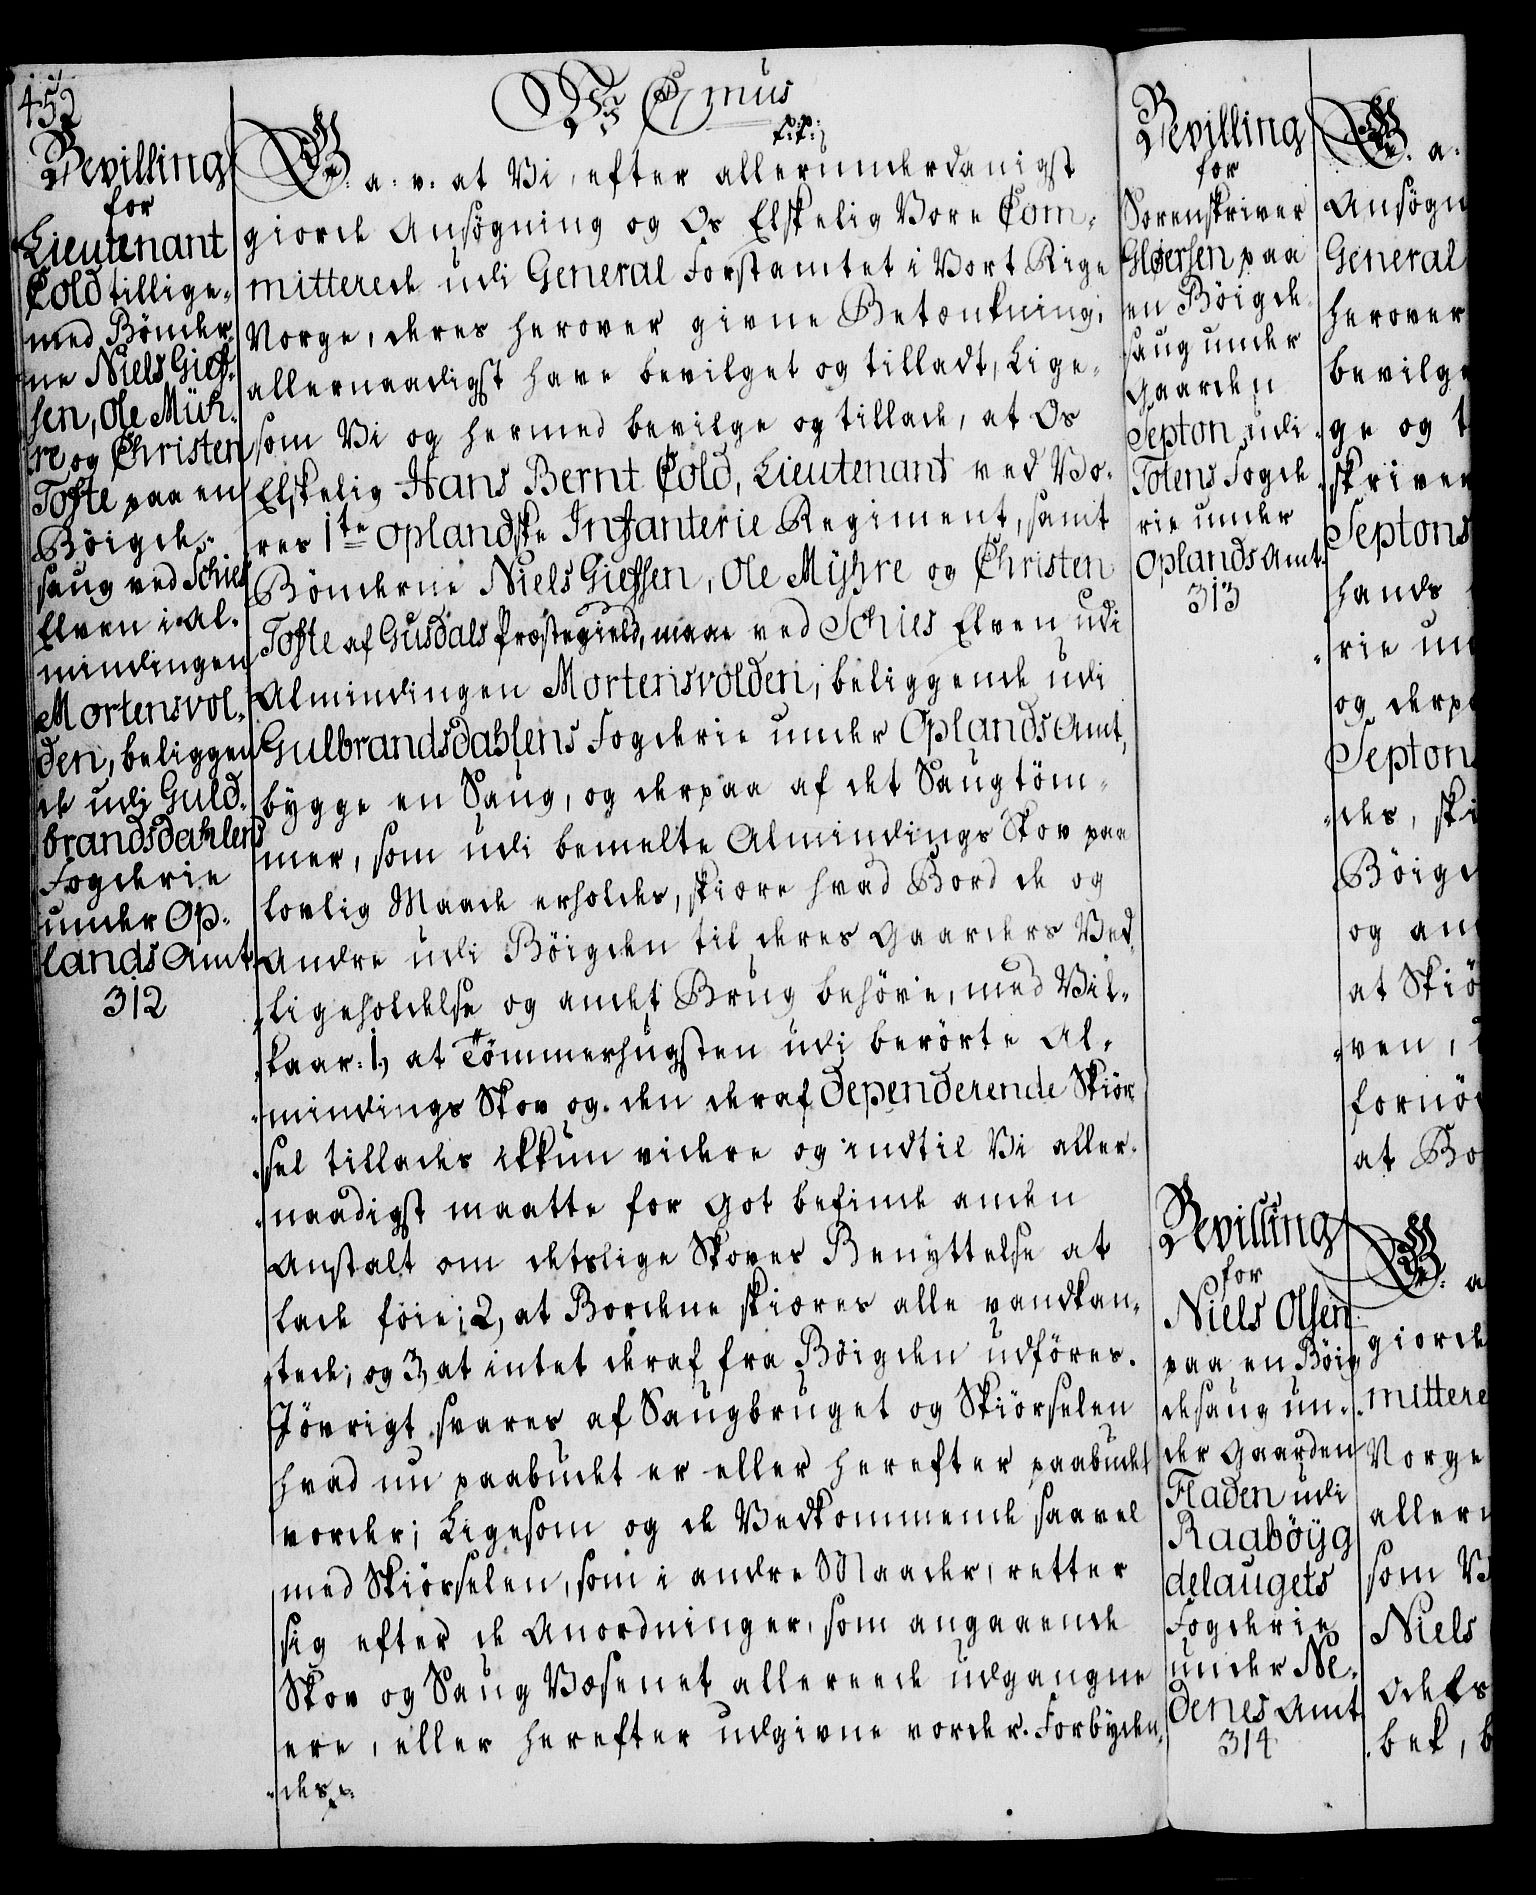 452
Bevilling
for
Lieutenant
Cold tillige-
med Bönder-
ne Niels Gief-
sen, Ole Müh-
re og Christen
Tofte paa en
Böigde-
saug ved Schies
Elven i Al-
mindingen
Mortensvol-
den, beliggen-
de udi Guld-
brandsdahlens
Fogderie
under Op-
lands Amt
312
Vi C 7mus
p:p:
G: a: v: at Vi, efter allerunderdanigst
giorde Ansögning og Os Elskelig Vore Com-
mitterede udi General Forstamtet i Vort Rige
Norge, deres herover givne Betænkning,
allernaadigst have bevilget og tilladt, Lige-
som Vi og hermed bevilge og tillade, at Os
Elskelig Hans Bernt Cold, Lieutenant ved Vo-
res 1te Oplandske Infanterie Regiment, samt
Bönderne Niels Giefsen, Ole Mÿhre og Christen
Tofte af Gusdals Præstegield, maae ved Schies Elven udi
Almindingen Mortensvolden, beliggende udi
Gulbrandsdahlens Fogderie under Oplands Amt,
bygge en Saug, og derpaa af det Saugtöm-
mer, som udi bemelte Almindings Skov paa
lovlig Maade erholdes, skiære hvad Bord de og
Andre udi Böigden til deres Gaarders Ved-
ligeholdelse og andet Brug behöve, med Vil-
kaar: 1, at Tömmerhugsten udi berörte Al-
mindings Skov og den deraf dependerende Skiör-
sel tillades ikkun videre og indtil Vi aller-
naadigst maatte for got befinde anden
Anstalt om detslige Skoves Benyttelse at
lade föie; 2, at Bordene skiæres alle vandkan-
tede; og 3, at intet deraf fra Böigden udföres.
Iövrigt svares af Saugbruget og Skiörselen
hvad nu paabudet er eller herefter paabudet
vorder; Ligesom og de Vedkommende saavel
med Skiörselen, som i andre Maader, retter
sig efter de Anordninger, som angaaende
Skov og Saug Væsenet allerede udgangne
ere, eller herefter udgivne vorder. Forbyden-
des p.
Bevilling
for
Sorenskriver
Gløersen paa
en Böigde-
saug under
Gaarden
Septon udi
Totens Fogde-
rie under
Oplands Amt.
313
Bevilling
for
Niels Olsen
paa en Böig-
desaug un-
der Gaarden
Fladen udi
Raaböÿg
delaugets
Fogderie
under Ne-
denes Amt
314
G: a:
Ansögn
General
herover
bevilge
ge og t
skriver
Septons
hands
rie un
og derpa
Septon
des, ski
Böigd
og an
at Skiö
ven,
fornö
at Bo
G: a
giorde
mittere
Norge
allern
som V
Niels
Odels
bek, b